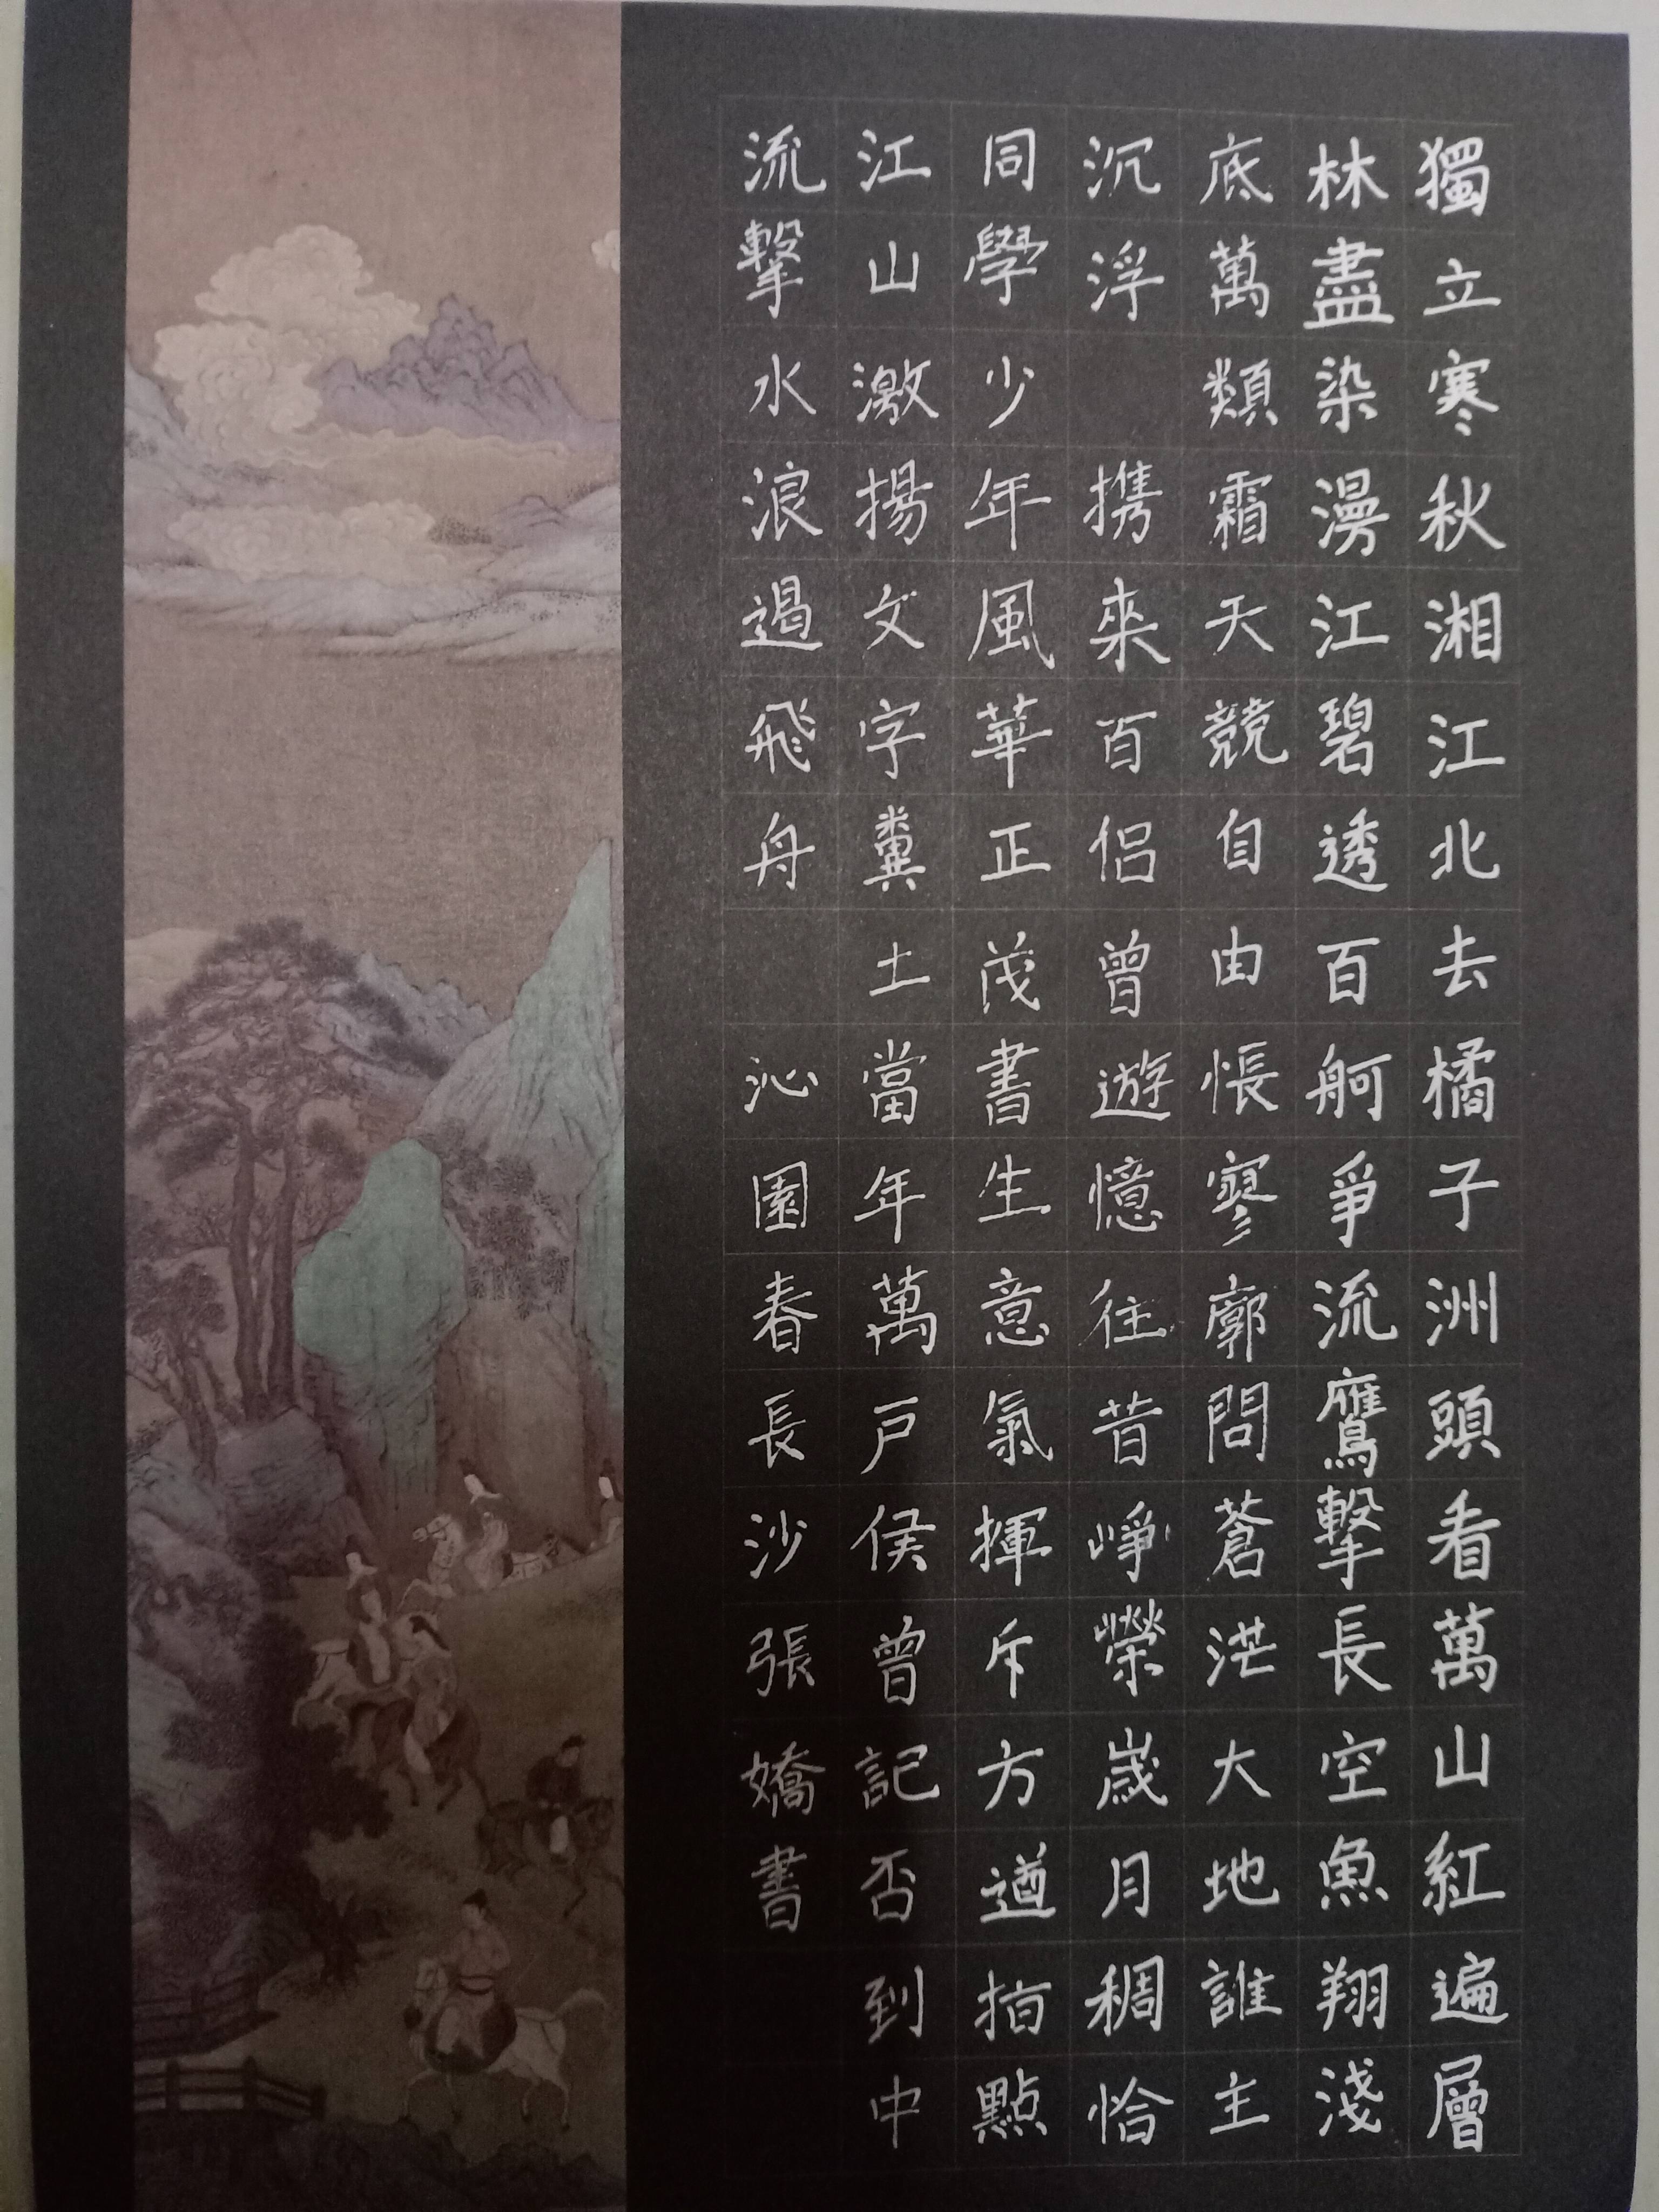 獨立寒秋湘江北去橘子洲頭看萬山紅遍層
林盡染漫江碧透百舸爭流鷹擊長空魚翔淺
底萬類霜天競自由悵寥廓問蒼茫大地誰主
沉浮 携來百侣曾遊憶往昔崢嶸歲月稠恰
同學少年風華正茂書生意氣揮斥方遒指點
江山激揚文字糞土當年萬戶侯曾記否到中
流擊水浪遏飛舟 沁園春長沙張嬌書